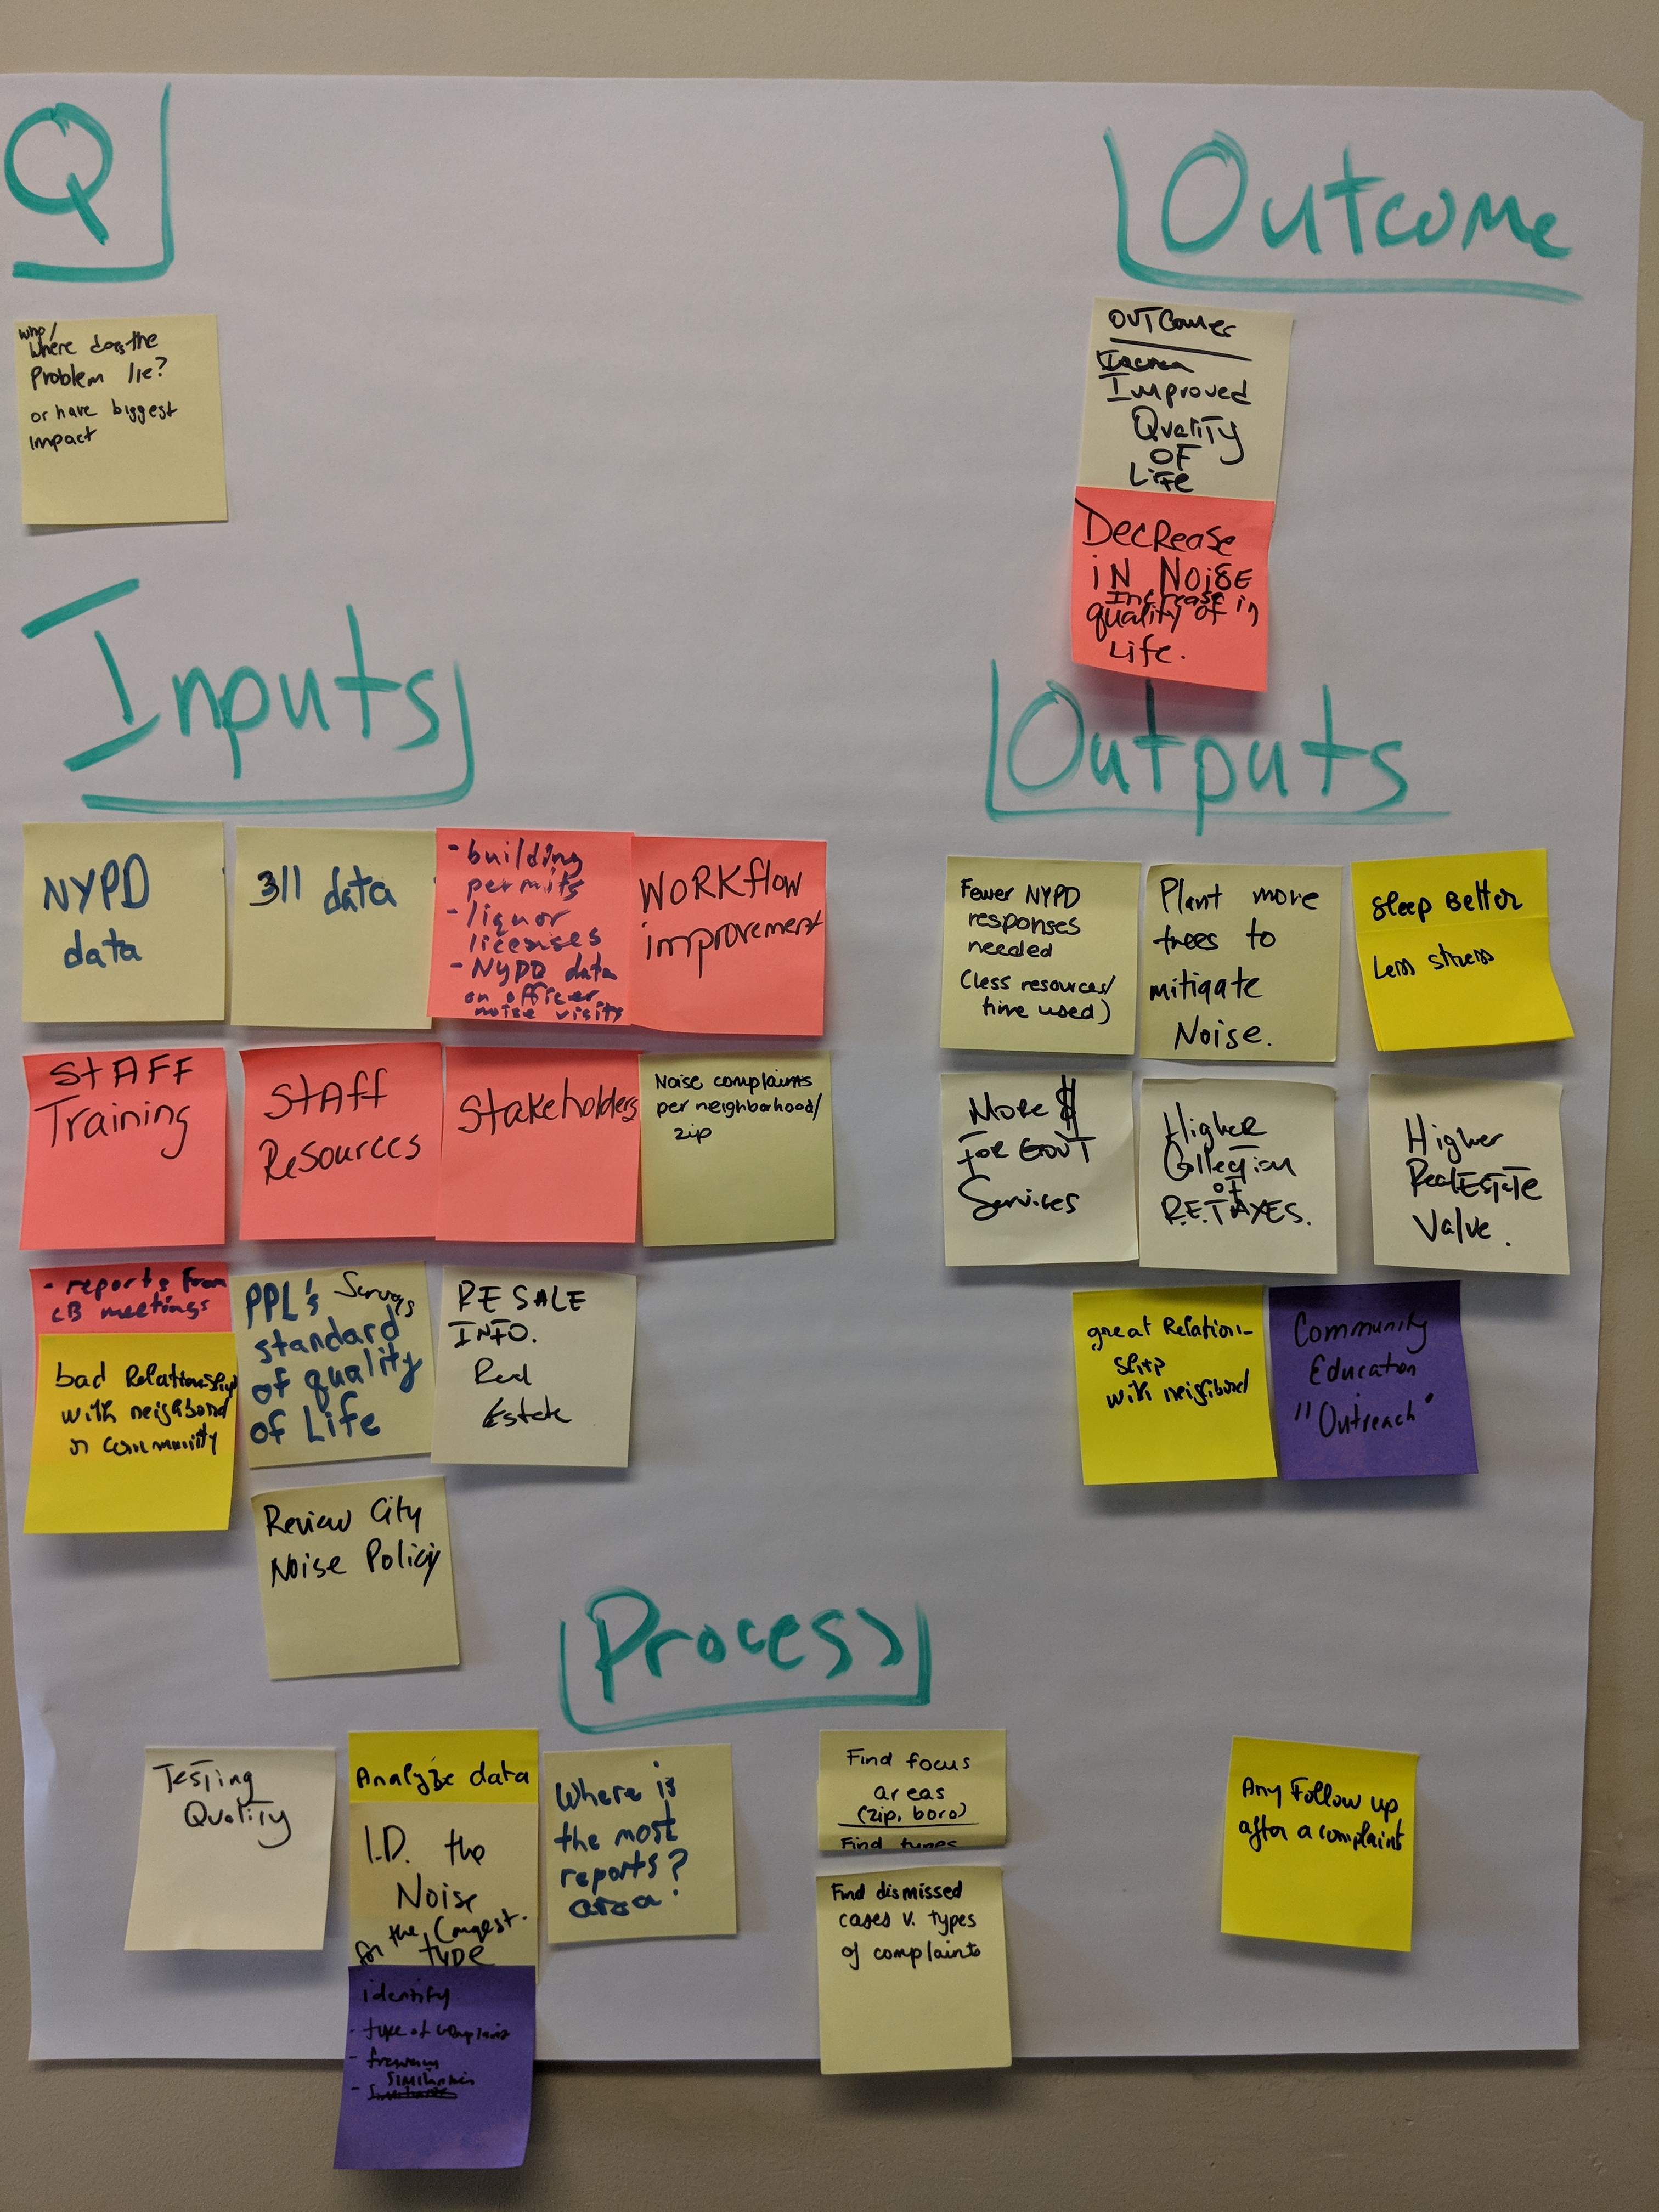 Q
who/
where does the
Problem lie?
or have biggest
impact
Outcome
OUTComes
Improved
Quality
OF
LiFe
Decrease
iN NOiSE
Increase in
quality of
Life.
Inputs
NYPD
data
311 data
- building
permits
- liquor
licenses
- NYPD data
on officer
noise visits
WORKflow
improvement
STAFF
Training
STAff
Resources
Stakeholders
Noise complaints
per neighborhood/
zip
- reports from
CB meetings
bad Relationship
with neighbord
or community
PPL's
standard
of quality
of Life
RE SALE
INFO.
Real
Estate
Review City
Noise Policy
Outputs
Fewer NYPD
responses
needed
(less resources/
time used)
Plant more
trees to
mitigate
Noise.
Sleep Better
Less stress
More $
FOR GOVT
Services
Higher
Collection
of
R.E. TAXES.
Higher
Real ESTATE
Value.
great Relation-
ship
with neighbord
Community
Education
"Outreach"
Process
Testing
Quality
Analyze data
I.D. the
Noise
for the Longest.
type
identify
- type of complaint
-
similarities
-
Where is
the most
reports?
area?
Find focus
areas
(zip, boro)
Find types
Find dismissed
cases v. types
of complaints
Any Follow up
after a complaint